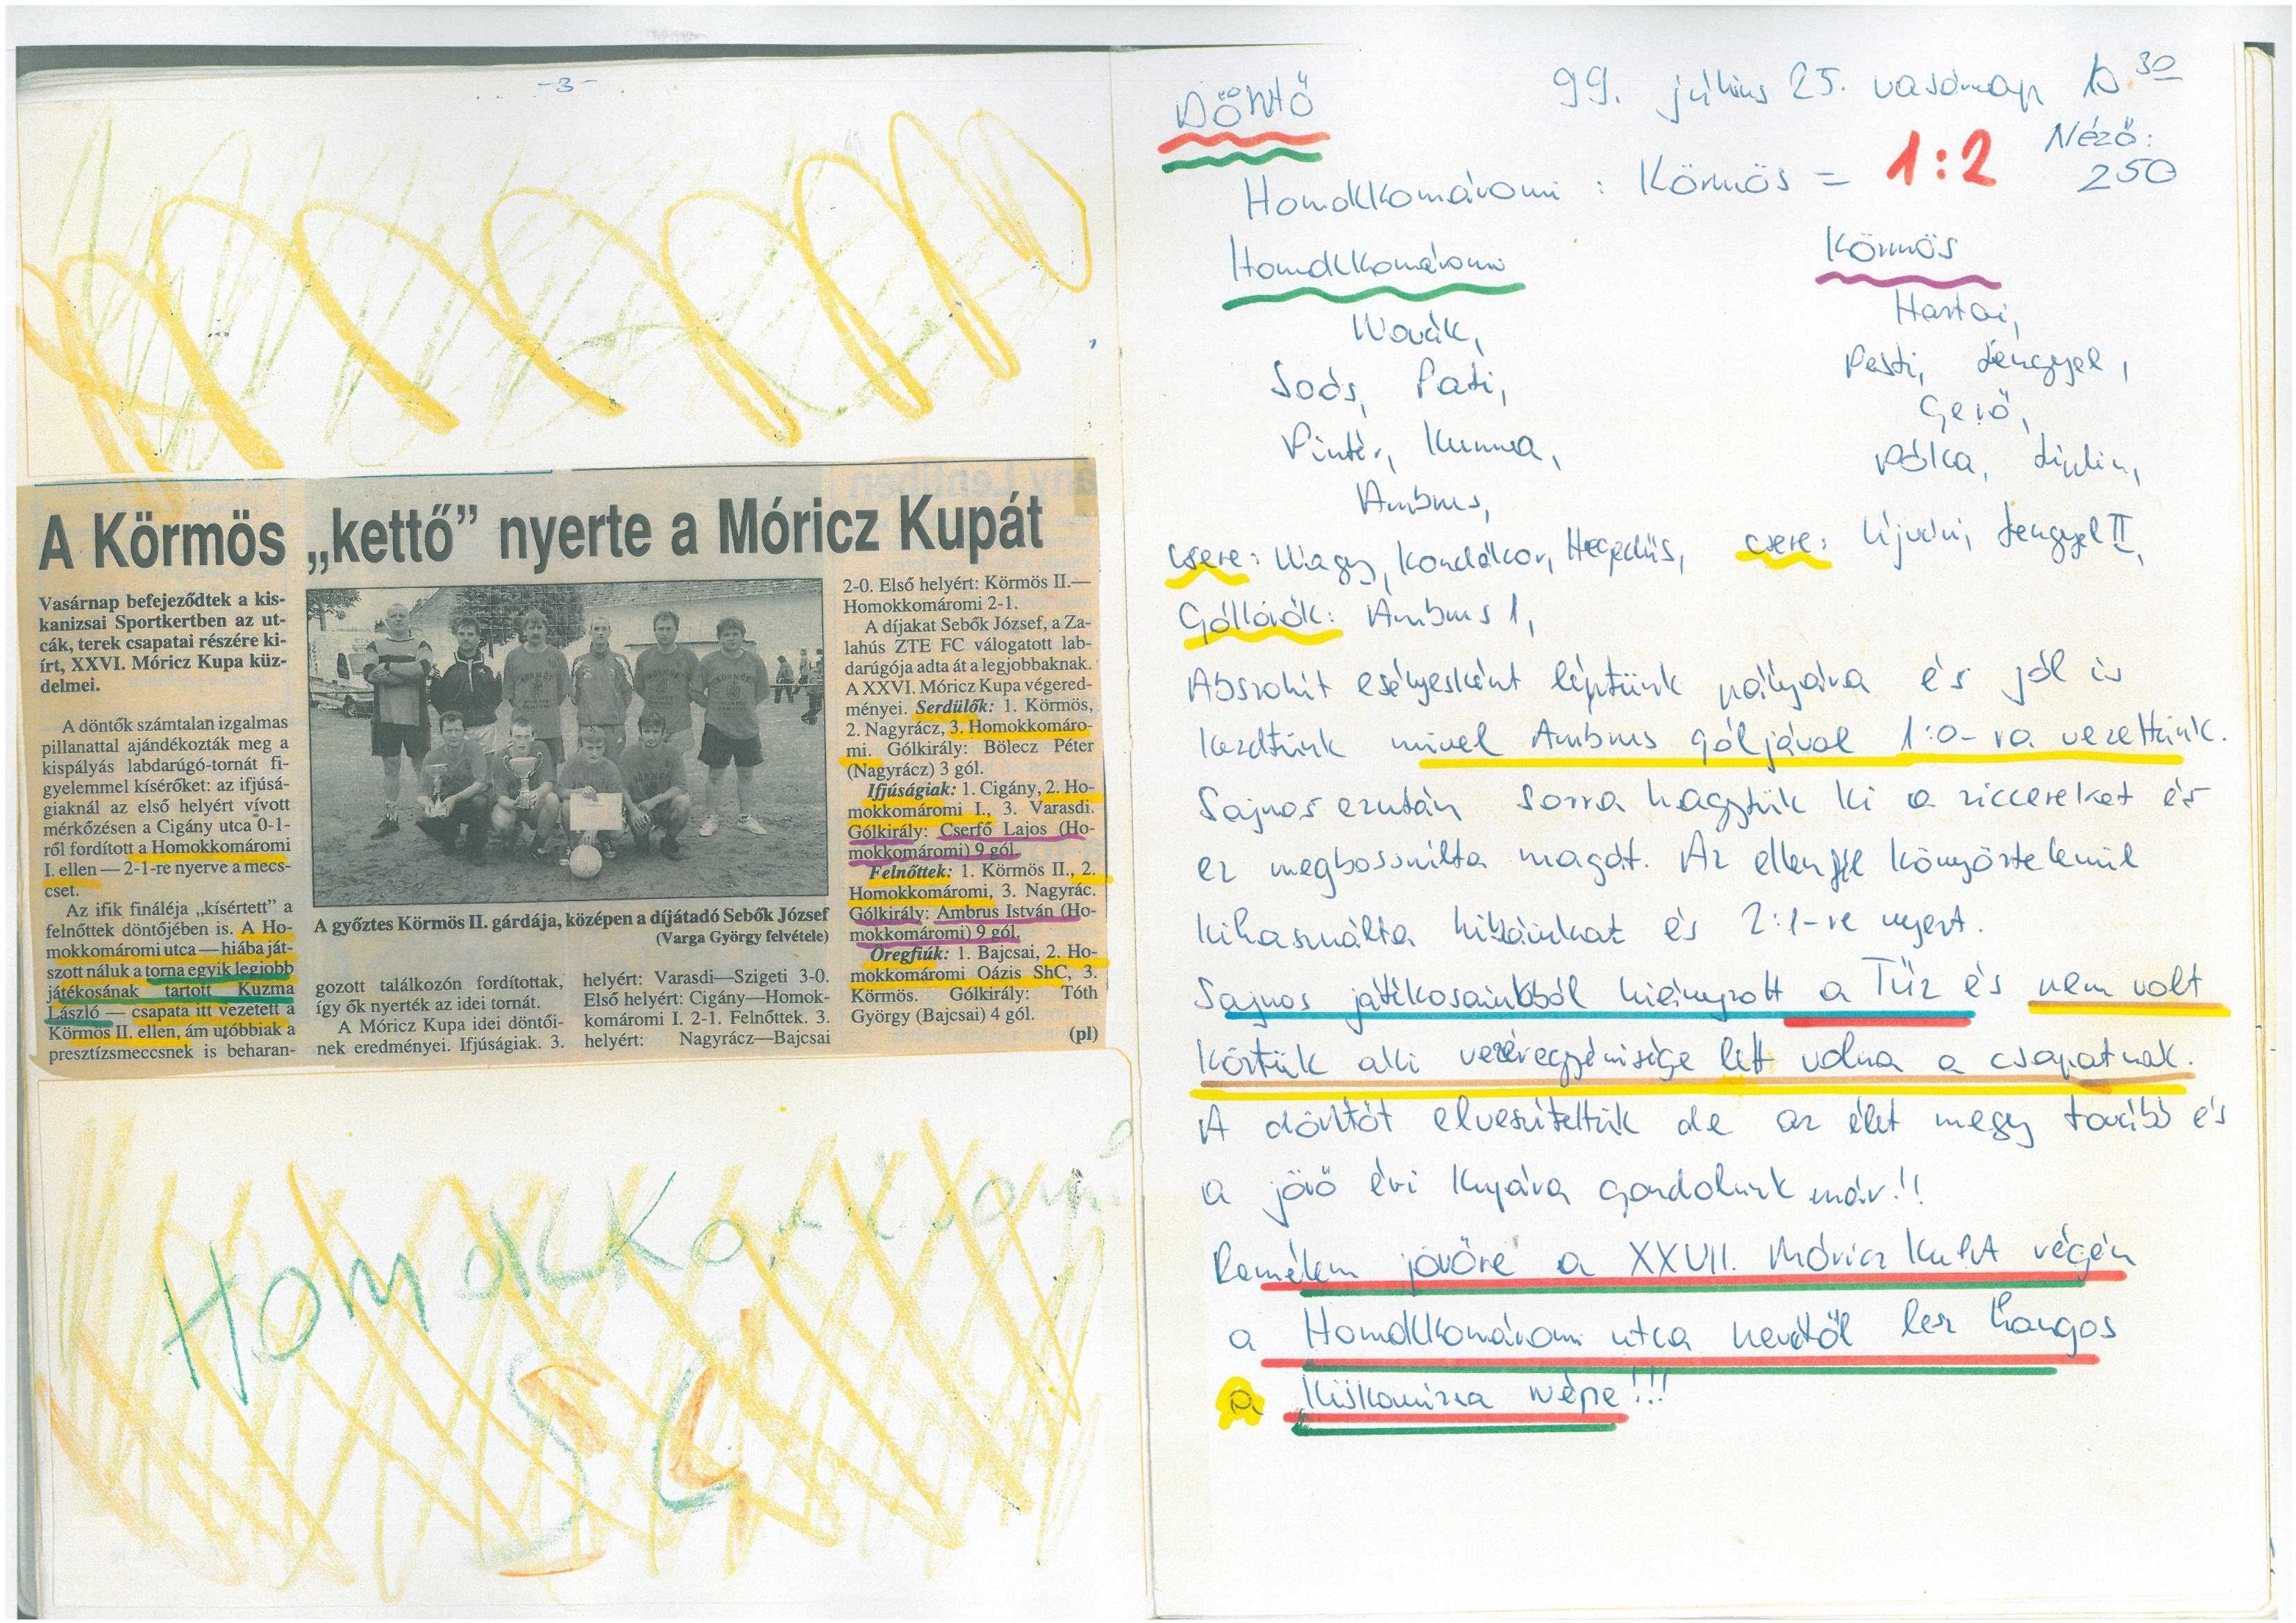 -3-
A Körmös „kettő” nyerte a Móricz Kupát
Vasárnap befejeződtek a kis-
kanizsai Sportkertben az ut-
cák, terek csapatai részére ki-
írt, XXVI. Móricz Kupa küz-
delmei.
A döntők számtalan izgalmas
pillanattal ajándékozták meg a
kispályás labdarúgó-tornát fi-
gyelemmel kísérőket: az ifjúsá-
giaknál az első helyért vívott
mérkőzésen a Cigány utca 0-1-
ről fordított a Homokkomáromi
I. ellen — 2-1-re nyerve a mecs-
cset.
Az ifik fináléja „kísértett” a
felnőttek döntőjében is. A Ho-
mokkomáromi utca — hiába ját-
szott náluk a torna egyik legjobb
játékosának tartott Kuzma
László — csapata itt vezetett a
Körmös II. ellen, ám utóbbiak a
presztízsmeccsnek is beharan-
A győztes Körmös II. gárdája, középen a díjátadó Sebők József
(Varga György felvétele)
gozott találkozón fordítottak,
így ők nyerték az idei tornát.
A Móricz Kupa idei döntői-
nek eredményei. Ifjúságiak. 3.
helyért: Varasdi—Szigeti 3-0.
Első helyért: Cigány—Homok-
komáromi I. 2-1. Felnőttek. 3.
helyért: Nagyrácz—Bajcsai
2-0. Első helyért: Körmös II.—
Homokkomáromi 2-1.
A díjakat Sebők József, a Za-
lahús ZTE FC válogatott lab-
darúgója adta át a legjobbaknak.
A XXVI. Móricz Kupa végered-
ményei. Serdülők: 1. Körmös,
2. Nagyrácz, 3. Homokkomáro-
mi. Gólkirály: Bölecz Péter
(Nagyrácz) 3 gól.
Ifjúságiak: 1. Cigány, 2. Ho-
mokkomáromi I., 3. Varasdi.
Gólkirály: Cserfő Lajos (Ho-
mokkomáromi) 9 gól.
Felnőttek: 1. Körmös II., 2.
Homokkomáromi, 3. Nagyrác.
Gólkirály: Ambrus István (Ho-
mokkomáromi) 9 gól.
Öregfiúk: 1. Bajcsai, 2. Ho-
mokkomáromi Oázis ShC, 3.
Körmös. Gólkirály: Tóth
György (Bajcsai) 4 gól.
(pl)
Homokkomáromi
SC
DÖNTŐ
99. július 25. vasárnap 30
Homokkomáromi : Körmös = 1:2
Néző:
250
Homokkomáromi
Novák,
Soós, Pati,
Pintér, Kuzma,
Ambrus,
csere: Nagy, Kondákor, Hegedüs,
Góllövők: Ambrus 1,
Körmös
Hartai,
Pesti, Lengyel,
Gerő,
Pólka,
csere: Ujvári, Lengyel II,
Abszolút esélyesként léptünk pályára és jól is
kezdtünk mivel Ambrus góljával 1:0-ra vezettünk.
Sajnos ezután sorra hagytuk ki a ziccereket és
ez megbosszulta magát. Az ellenfél könyörtelenül
kihasználta hibáinkat és 2:1-re nyert.
Sajnos játékosainkból hiányzott a Tűz és nem volt
köztük aki vezéregyénisége lett volna a csapatnak.
A döntőt elveszítettük de az élet megy tovább és
a jövő évi kupára gondolunk már!!
Remélem jövőre a XXVII. Móricz KUPA végén
a Homokkomáromi utca nevétől lesz hangos
a Kiskanizsa népe!!!